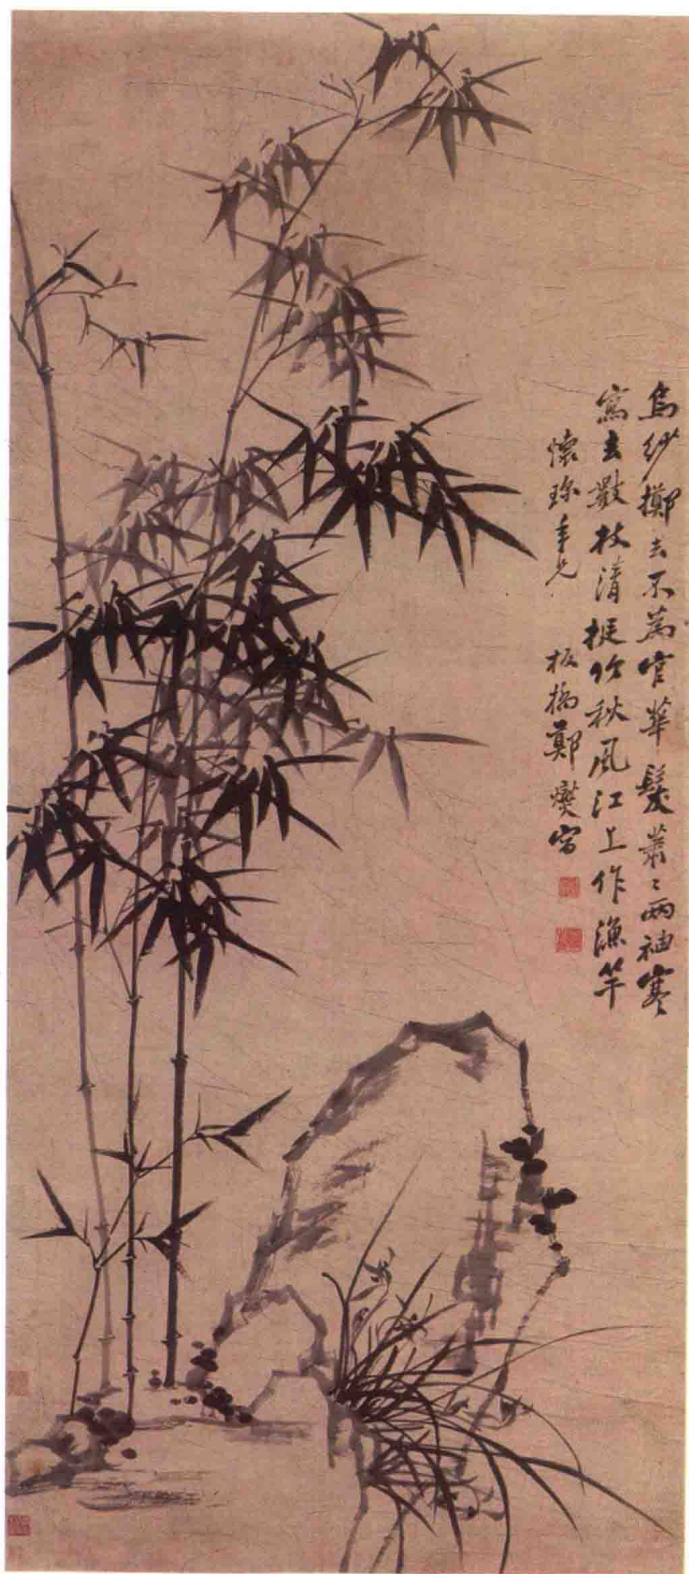 烏紗擲去不為官華髮蕭〻兩袖寒
寫去數枝清挺竹秋風江上作漁竿
懷 年兄 板橋鄭燮寫